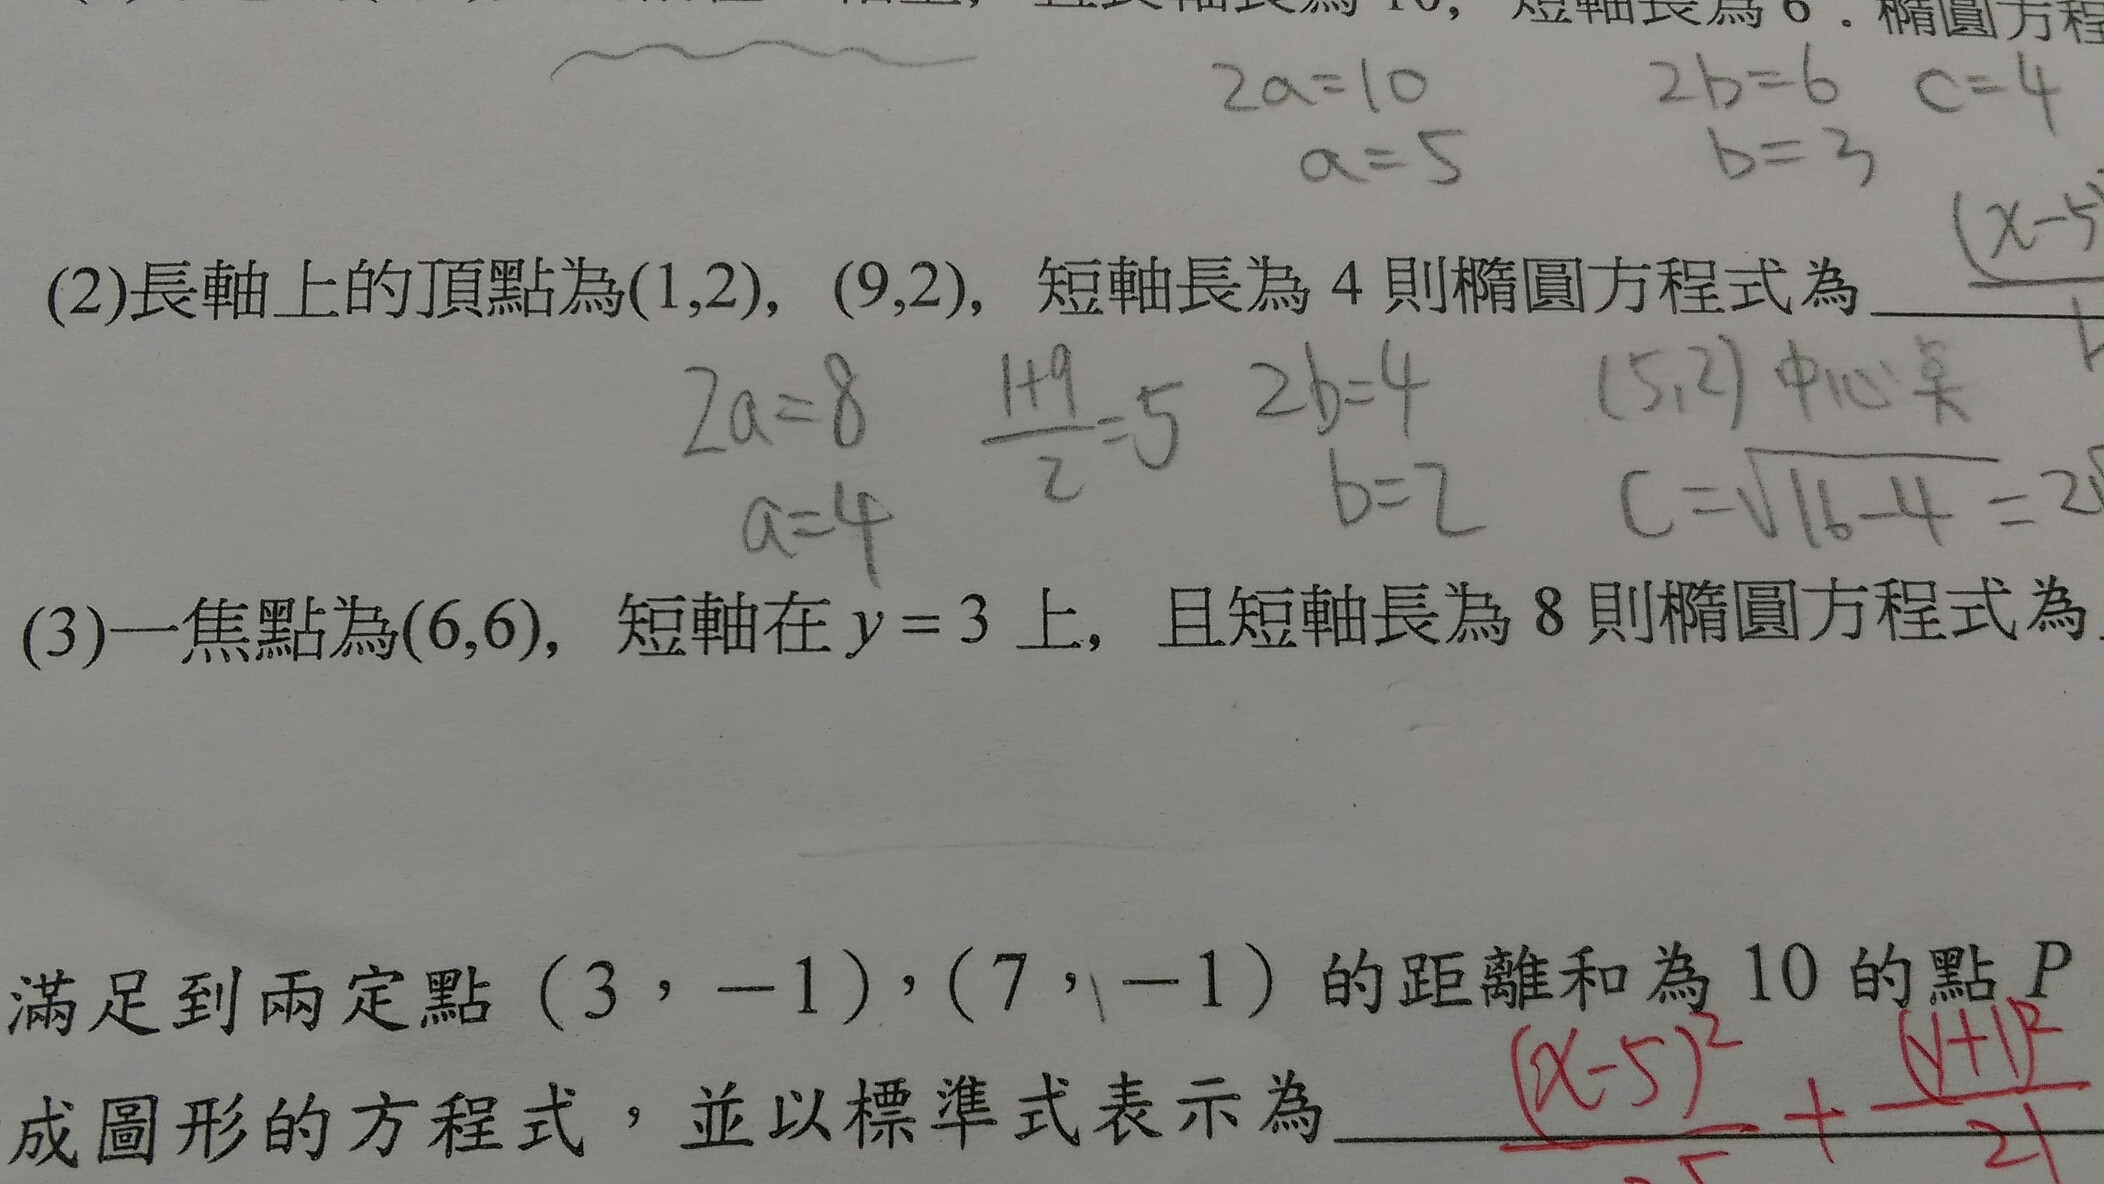 長軸長為 10, 短軸長為 6 . 橢圓方程
2a=10 2b=6 c=4
a=5 b=3
(2)長軸上的頂點為(1,2), (9,2), 短軸長為 4 則橢圓方程式為 (x-5)
2a=8 1+9/2=5 2b=4 (5,2) 中心点
a=4 b=2 C=√16-4=2√
(3)一焦點為(6,6), 短軸在 y = 3 上, 且短軸長為 8 則橢圓方程式為
滿足到兩定點 (3, -1), (7, -1) 的距離和為 10 的點 P
成圖形的方程式,並以標準式表示為 (x-5)²/25 + (y+1)²/21